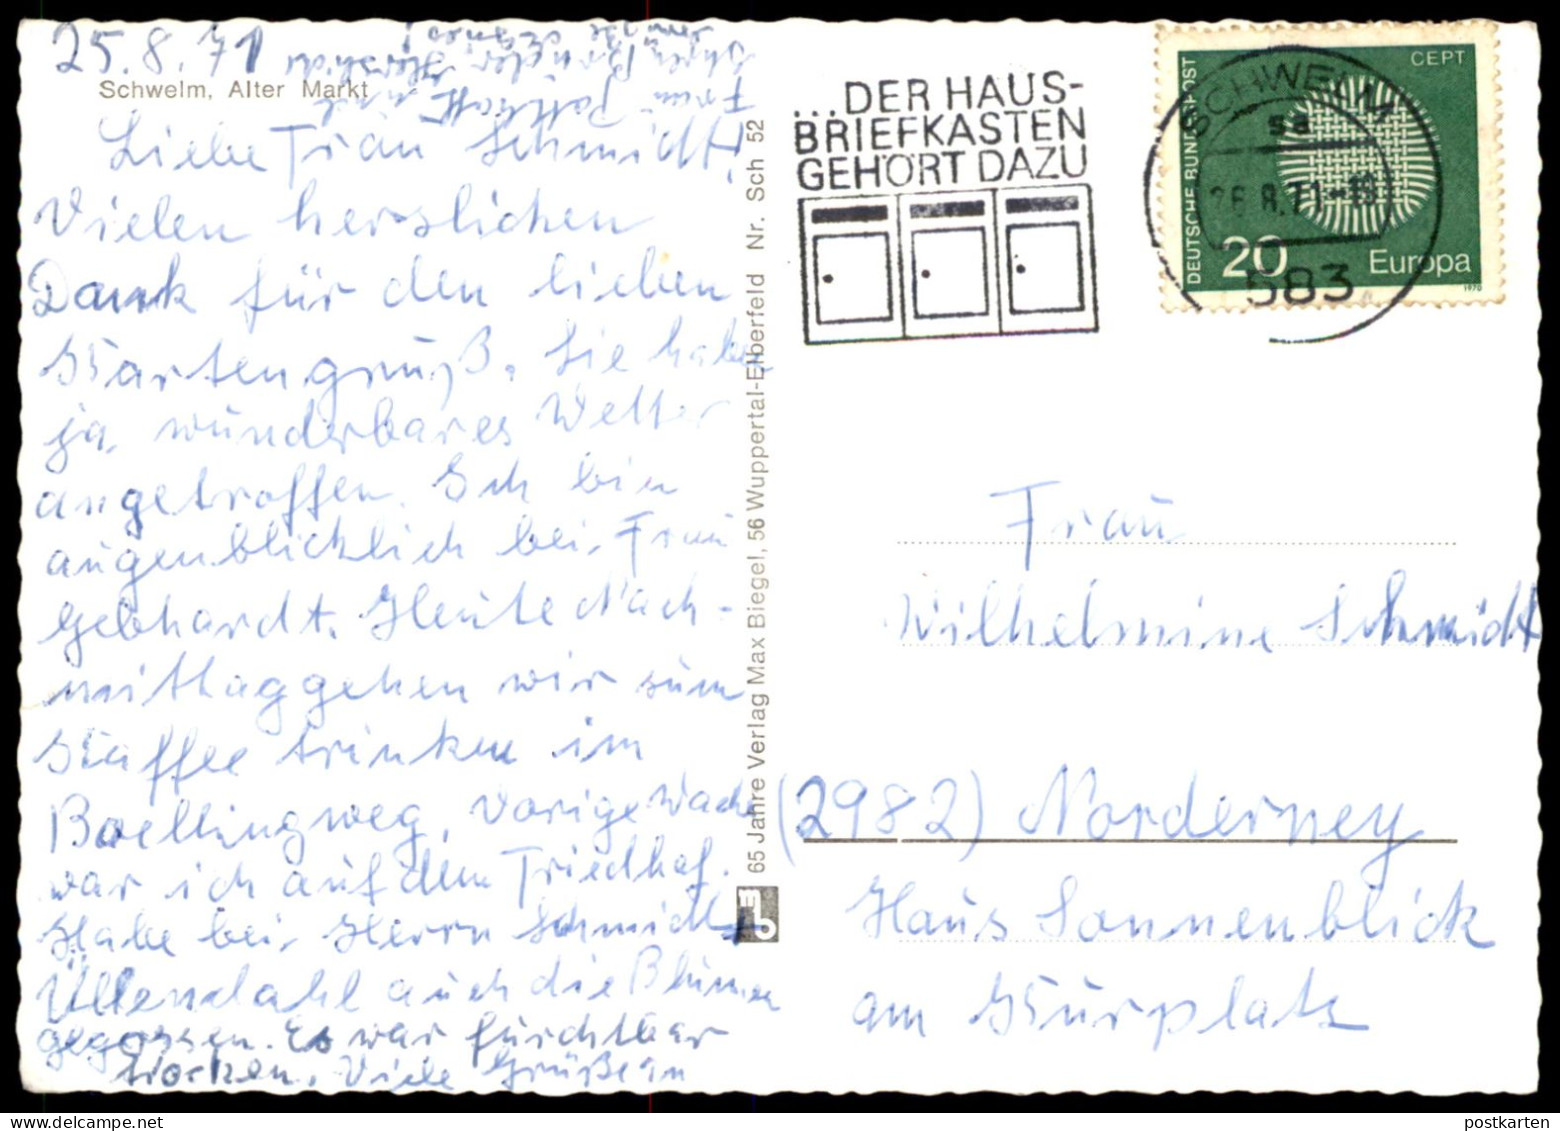 25.8.71
Schwelm, Alter Markt
Liebe Frau Schmidt!
Vielen herzlichen
Dank für den lieben
Kartengruß. Sie haben
ja wunderbares Wetter
angetroffen. Ich bin
augenblicklich bei Frau
Gebhardt. Heute Nach-
mittag gehen wir zum
Kaffee trinken im
Boellingweg. Vorige Woche
war ich auf dem Friedhof.
Habe bei Herrn Schmidt,
Üllendahl auch die Blumen
gegossen. Es war furchtbar
trocken. Viele Grüße an
Frau und
Ihren
65 Jahre Verlag Max Biegel, 56 Wuppertal-Elberfeld Nr. Sch 52
...DER HAUS-
BRIEFKASTEN
GEHÖRT DAZU
SCHWELM
sa
26.8.71-18
583
DEUTSCHE BUNDESPOST
CEPT
20 Europa
1970
Frau
Wilhelmine Schmidt
(2982) Norderney
Haus Sonnenblick
am Kurplatz
postkarten